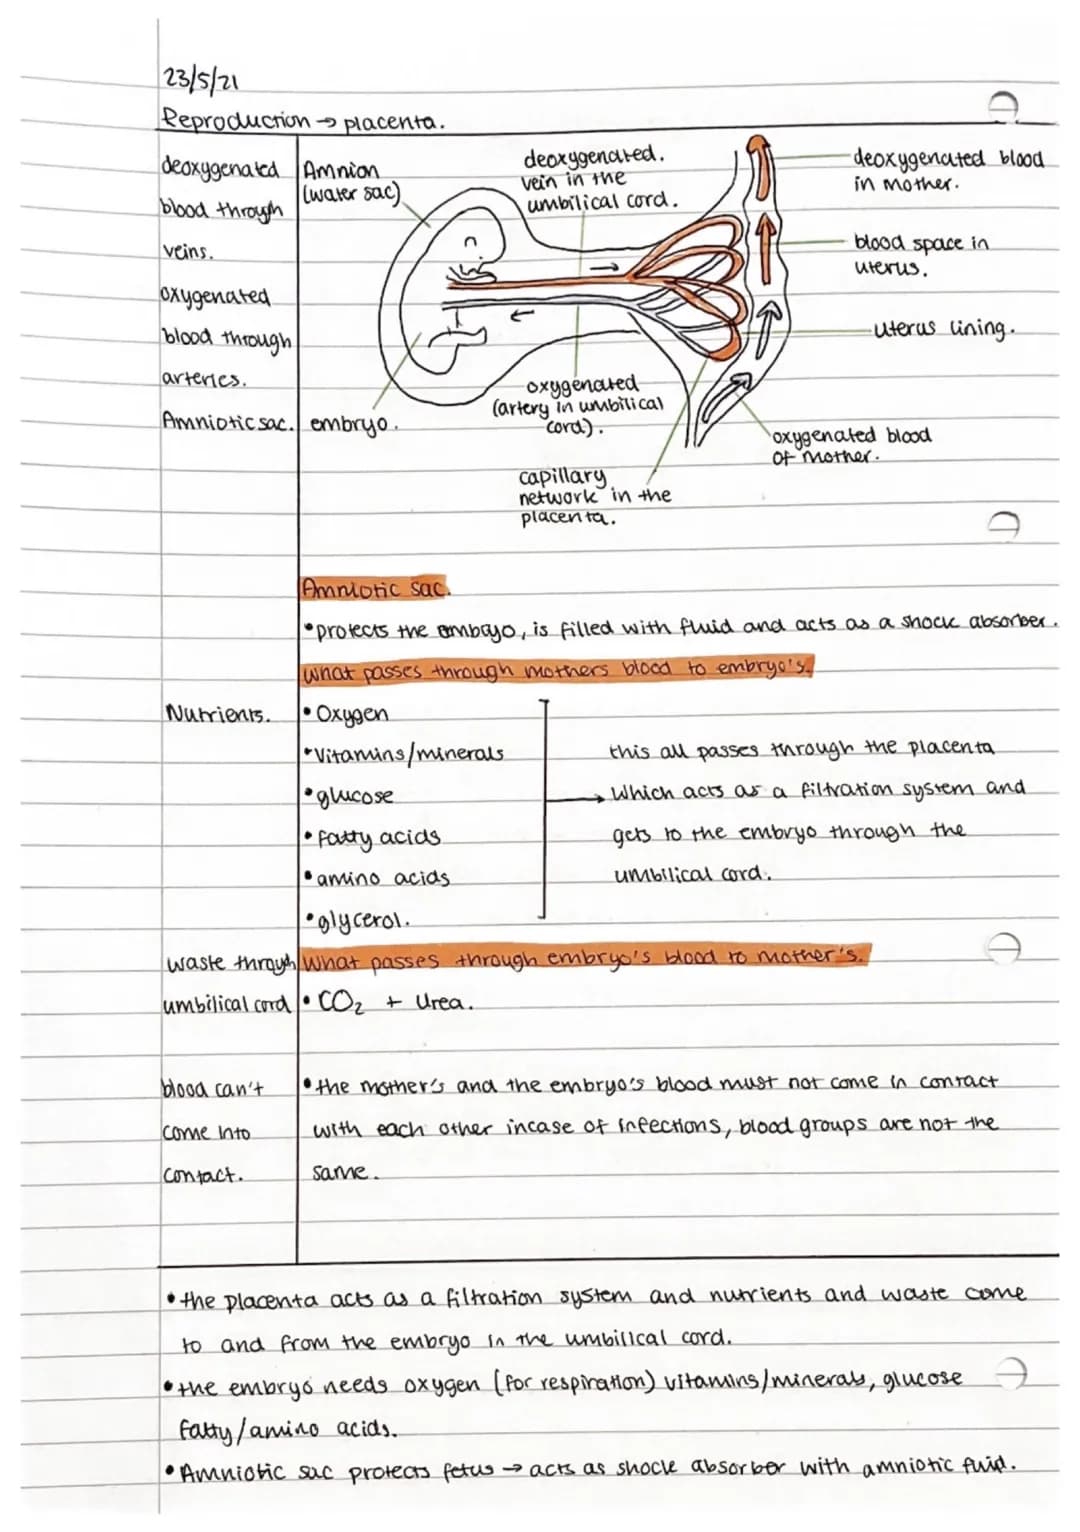 23/5/21
Reproduction → placenta.
deoxygenated
blood through
veins.
oxygenated
blood through
arteries.
Amniotic sac.
Amnion
(water sac)
deoxygenated.
vein in the
umbilical cord.
deoxygenated blood
in mother.
blood space in
uterus.
uterus lining.
oxygenated
(artery in umbilical
cord).
embryo.
oxygenated blood
of mother.
capillary
network in the
placenta.
Amniotic sac.
•protects the embryo, is filled with fluid and acts as a shock absorber.
what passes through mothers blood to embryo's.
Nutrients.
• Oxygen
•Vitamins/minerals
•glucose
• fatty acids
•amino acids
•glycerol.
this all passes through the placenta
→ which acts as a filtration system and
gets to the embryo through the
umbilical cord.
waste through
umbilical cord
What passes through embryo's blood to mother's.
• CO₂ + Urea.
blood can't
come into
contact.
•the mother's and the embryo's blood must not come in contact
with each other incase of infections, blood groups are not the
same.
•the placenta acts as a filtration system and nutrients and waste come
to and from the embryo in the umbilical cord.
•the embryo needs oxygen (for respiration) vitamins/minerals, glucose
fatty/amino acids.
•Amniotic sac protects fetus → acts as shock absorber with amniotic fluid.